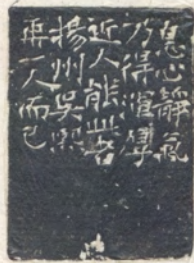 息心靜氣
乃得渾厚
近人能此者
揚州吳熙
再一人而已